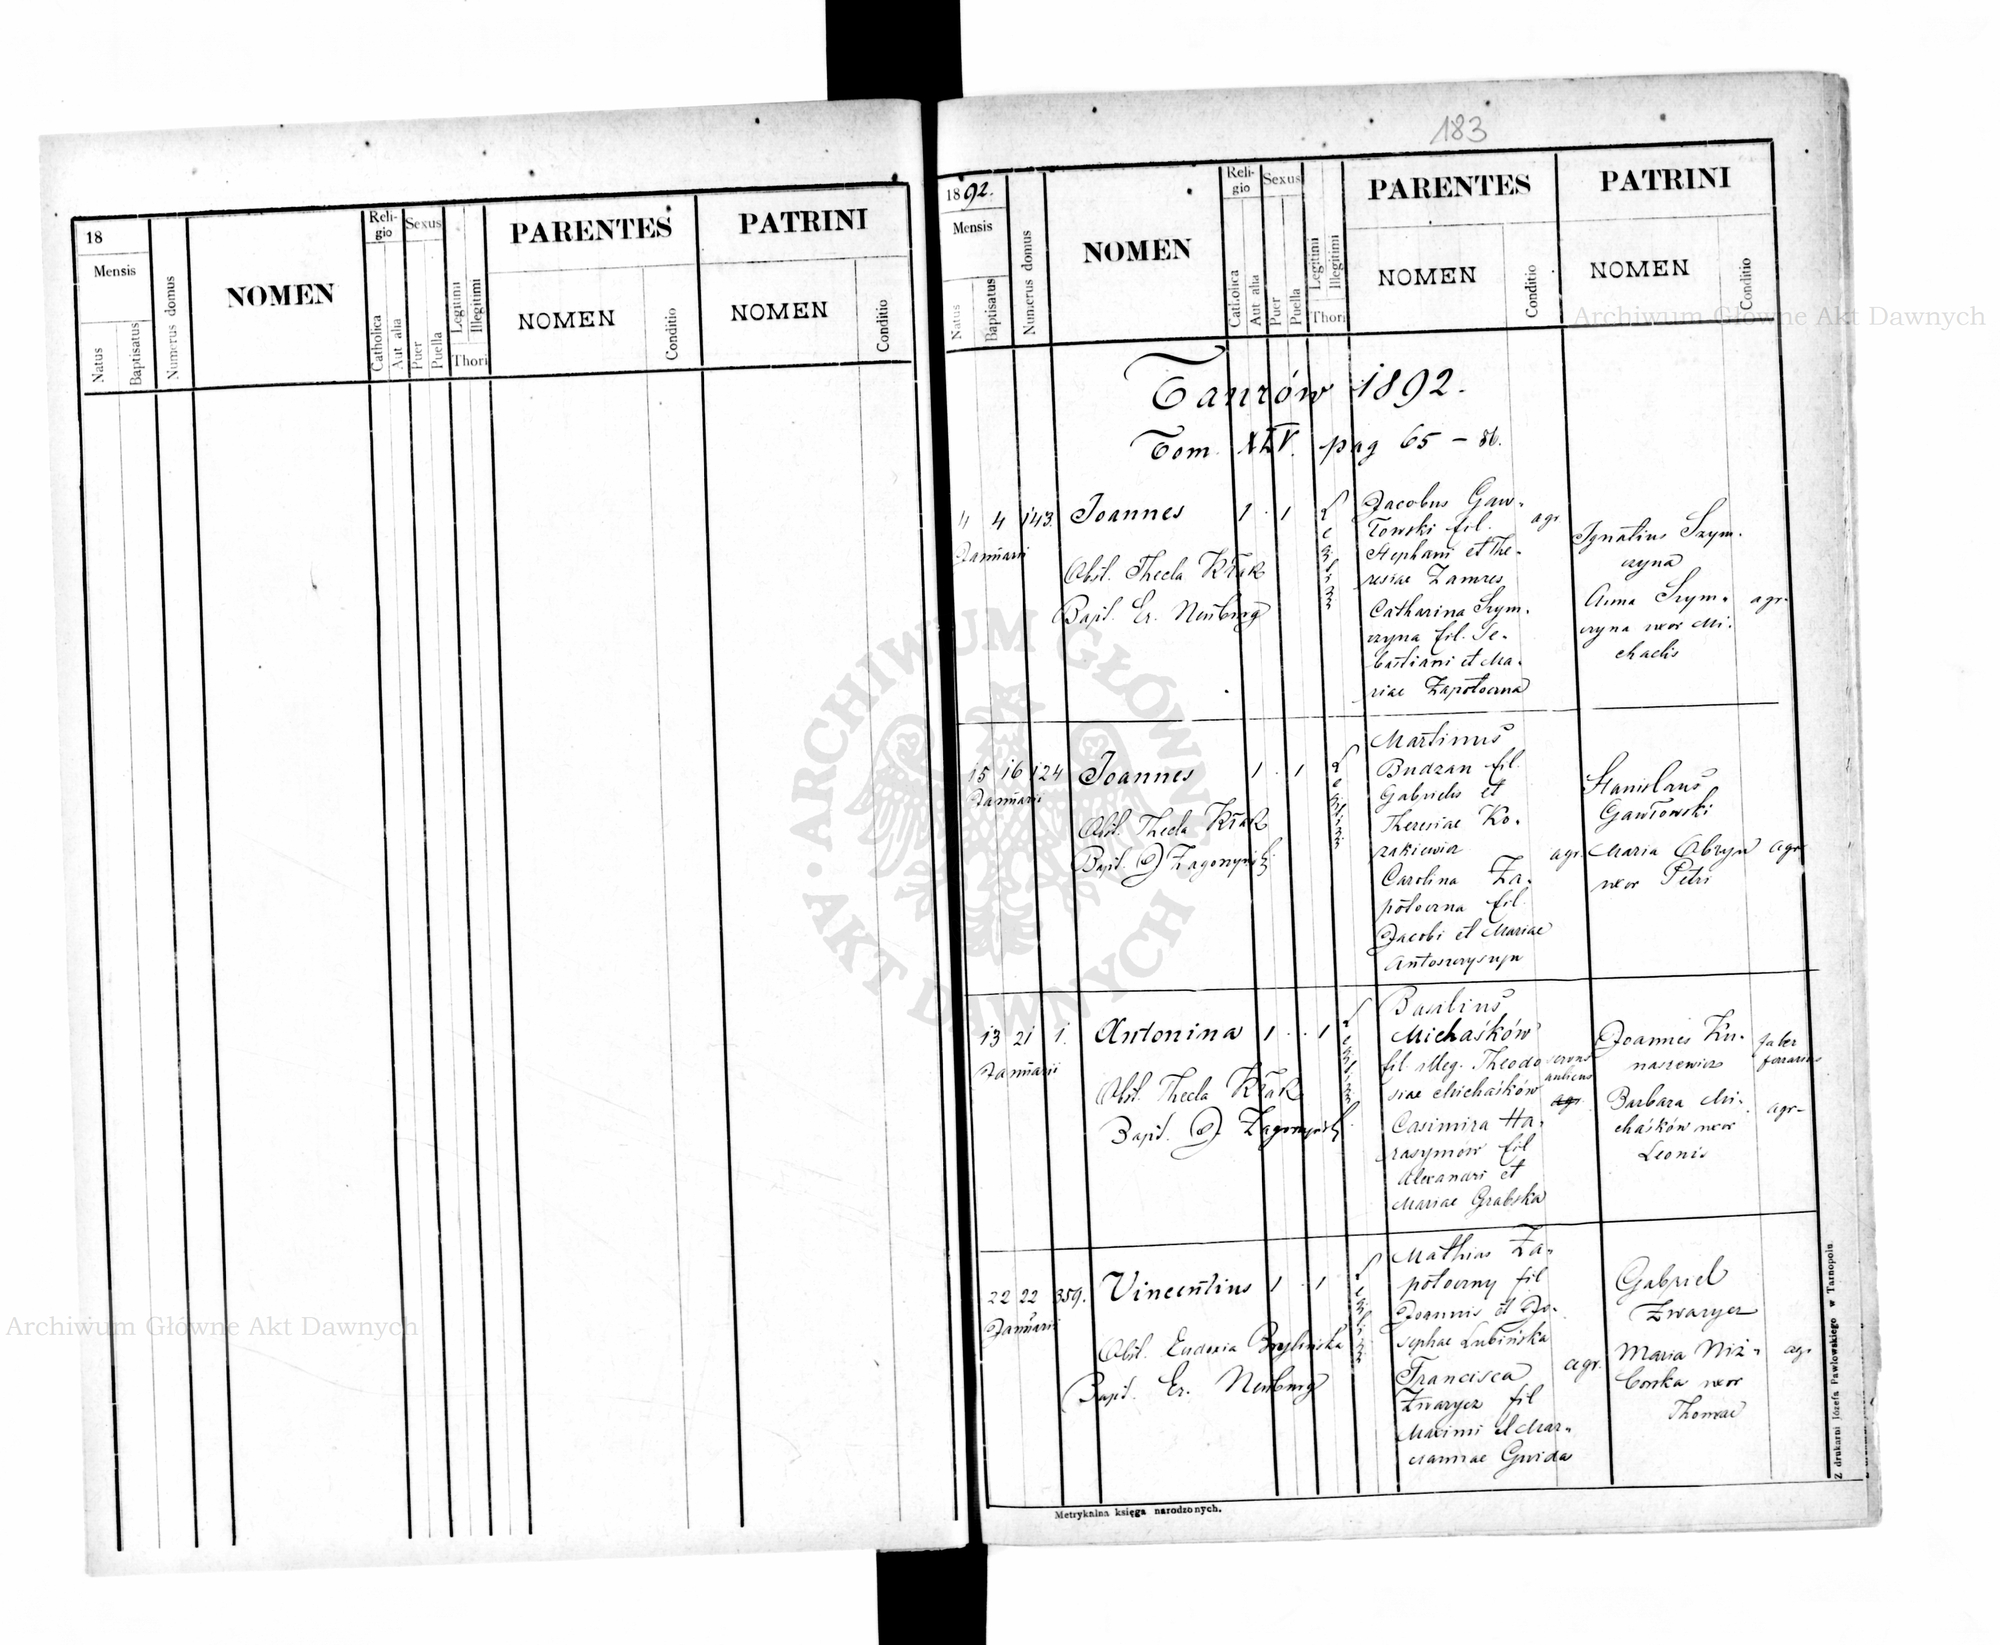 18
Mensis
Natus
Baptisatus
Numerus domus
NOMEN
Reli-
gio
Catholica
Aut alia
Sexus
Puer
Puella
Legitimi
Illegitimi
Thori
PARENTES
NOMEN
Conditio
PATRINI
NOMEN
Conditio
183
1892.
Mensis
Natus
Baptisatus
Numerus domus
NOMEN
Reli-
gio
Catholica
Aut alia
Sexus
Puer
Puella
Legitimi
Illegitimi
Thori
PARENTES
NOMEN
Conditio
PATRINI
NOMEN
Conditio
Taurów 1892.
Tom. XLV. pag 65 – 86.
4 4 143. Joannes 1 1
Januarii
Obst. Thecla Kłak
Bapt. Er. Neuburg
Jacobus Gaw-
łowski fil.
Stephani et The-
resiae Zamres
Catharina Szym-
czyna fil. Se-
bastiani et Ma-
riae Zapotoczna
agr
Ignatius Szym-
czyna
Anna Szym-
czyna uxor Mi-
chaelis
agr.
15 16 124 Joannes 1 1
Januarii
Obst. Thecla Kłak
Bapt.
Martinus
Budzan fil.
Gabrielis et
Theresiae Ko-
zakiewicz
Carolina Za-
potoczna fil.
Jacobi et Mariae
agr.
Stanislaus
Gawłowski
Maria
uxor Petri
agr
13 21 1. Antonina 1 1
Januarii
Obst. Thecla Kłak
Bapt.
Basilius
Michaśków
fil. illeg. Theodo
siae Michaśków
Casimira Ha-
rasymów fil
Alexandri et
Mariae Grabska
servus
aulicus
agr.
Joannes Ku-
naszewicz
Barbara Mi-
chaśków uxor
Leonis
faber
ferrarius
agr-
22 22 359. Vincentius 1 1
Januarii
Obst. Eudoxia
Bapt. Er. Neuburg
Mathias Za-
potoczny fil
Joannis et Jo-
sephae Lubińska
Francisca
Zwarycz fil
Maximi et Mar-
iannae Gwida
agr.
Gabriel
Zwarycz
Maria Niż-
borska uxor
Thomae
agr
Metrykalna księga narodzonych.
Z drukarni Józefa Pawlowskiego w Tarnopolu.
Archiwum Główne Akt Dawnych
Archiwum Główne Akt Dawnych
ARCHIWUM GŁÓWNE
AKT DAWNYCH